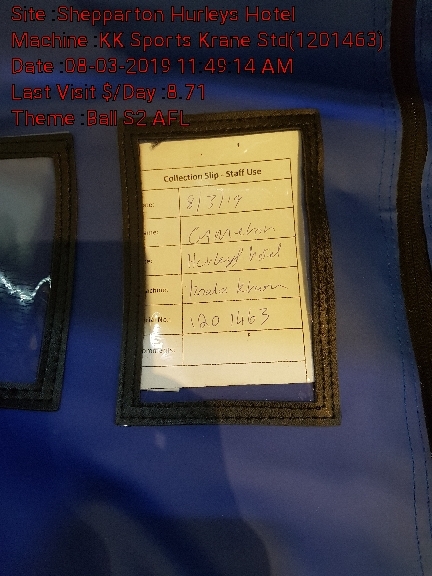 Site :Shepparton Hurleys Hotel
Machine :KK Sports Krane Std(1201463)
Date :08-03-2019 11:49:14 AM
Last Visit $/Day :8.71
Theme :Ball S2 AFL
Collection Slip - Staff Use
8/3/19
Hurleys hotel
Machine:
No.
1201463